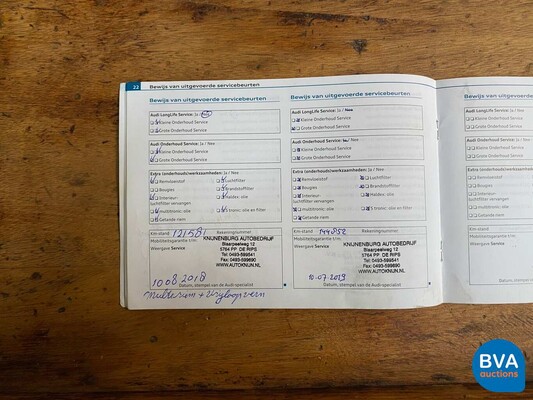 22
Bewijs van uitgevoerde servicebeurten
Bewijs van uitgevoerde servicebeurten
Audi LongLife Service: Ja / Nee
Kleine Onderhoud Service
Grote Onderhoud Service
Audi Onderhoud Service: Ja / Nee
Kleine Onderhoud Service
Grote Onderhoud Service
Extra (onderhouds)werkzaamheden: Ja / Nee
Remvloeistof
Luchtfilter
Bougies
Brandstoffilter
Interieur-
Haldex: olie
luchtfilter vervangen
multitronic: olie
S tronic: olie en filter
Getande riem
Km-stand: 121581
Rekeningnummer:
Mobiliteitsgarantie t/m:
Weergave Service
KNIJNENBURG AUTOBEDRIJF
Blaarpeelweg 12
5764 PP DE RIPS
Tel: 0493-599541
Fax: 0493-599690
WWW.AUTOKNIJN.NL
10 08 2018
Datum, stempel van de Audi-specialist
Bewijs van uitgevoerde servicebeurten
Bewijs van uitgevoerde servicebeurten
Audi LongLife Service: Ja / Nee
Kleine Onderhoud Service
Grote Onderhoud Service
Audi Onderhoud Service: Ja / Nee
Kleine Onderhoud Service
Grote Onderhoud Service
Extra (onderhouds)werkzaamheden: Ja / Nee
Remvloeistof
Luchtfilter
Bougies
Brandstoffilter
Interieur-
Haldex: olie
luchtfilter vervangen
multitronic: olie
S tronic: olie en filter
Getande riem
Km-stand: 144852
Rekeningnummer:
Mobiliteitsgarantie t/m:
Weergave Service
KNIJNENBURG AUTOBEDRIJF
Blaarpeelweg 12
5764 PP DE RIPS
Tel: 0493-599541
Fax: 0493-599690
WWW.AUTOKNIJN.NL
10-07-2019
Datum, stempel van de Audi-specialist
Bewijs van uitg
Audi LongLife Service: Ja /
Kleine Onderhoud Servi
Grote Onderhoud Servic
Audi Onderhoud Service: J
Kleine Onderhoud Serv
Grote Onderhoud Serv
Extra (onderhouds)werkza
Remvloeistof
Bougies
Interieur-
luchtfilter vervangen
multitronic: olie
Getande riem
Km-stand:
Mobiliteitsgarantie t/m:
Weergave Service
BVA
auctions